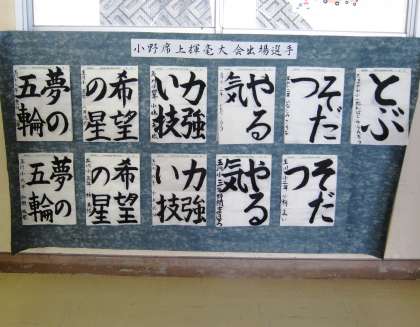 小野席上揮毫大会出場選手
とぶ
そだつ
やる気
力強い技
希望の星
夢の五輪
そだつ
やる気
力強い技
希望の星
夢の五輪